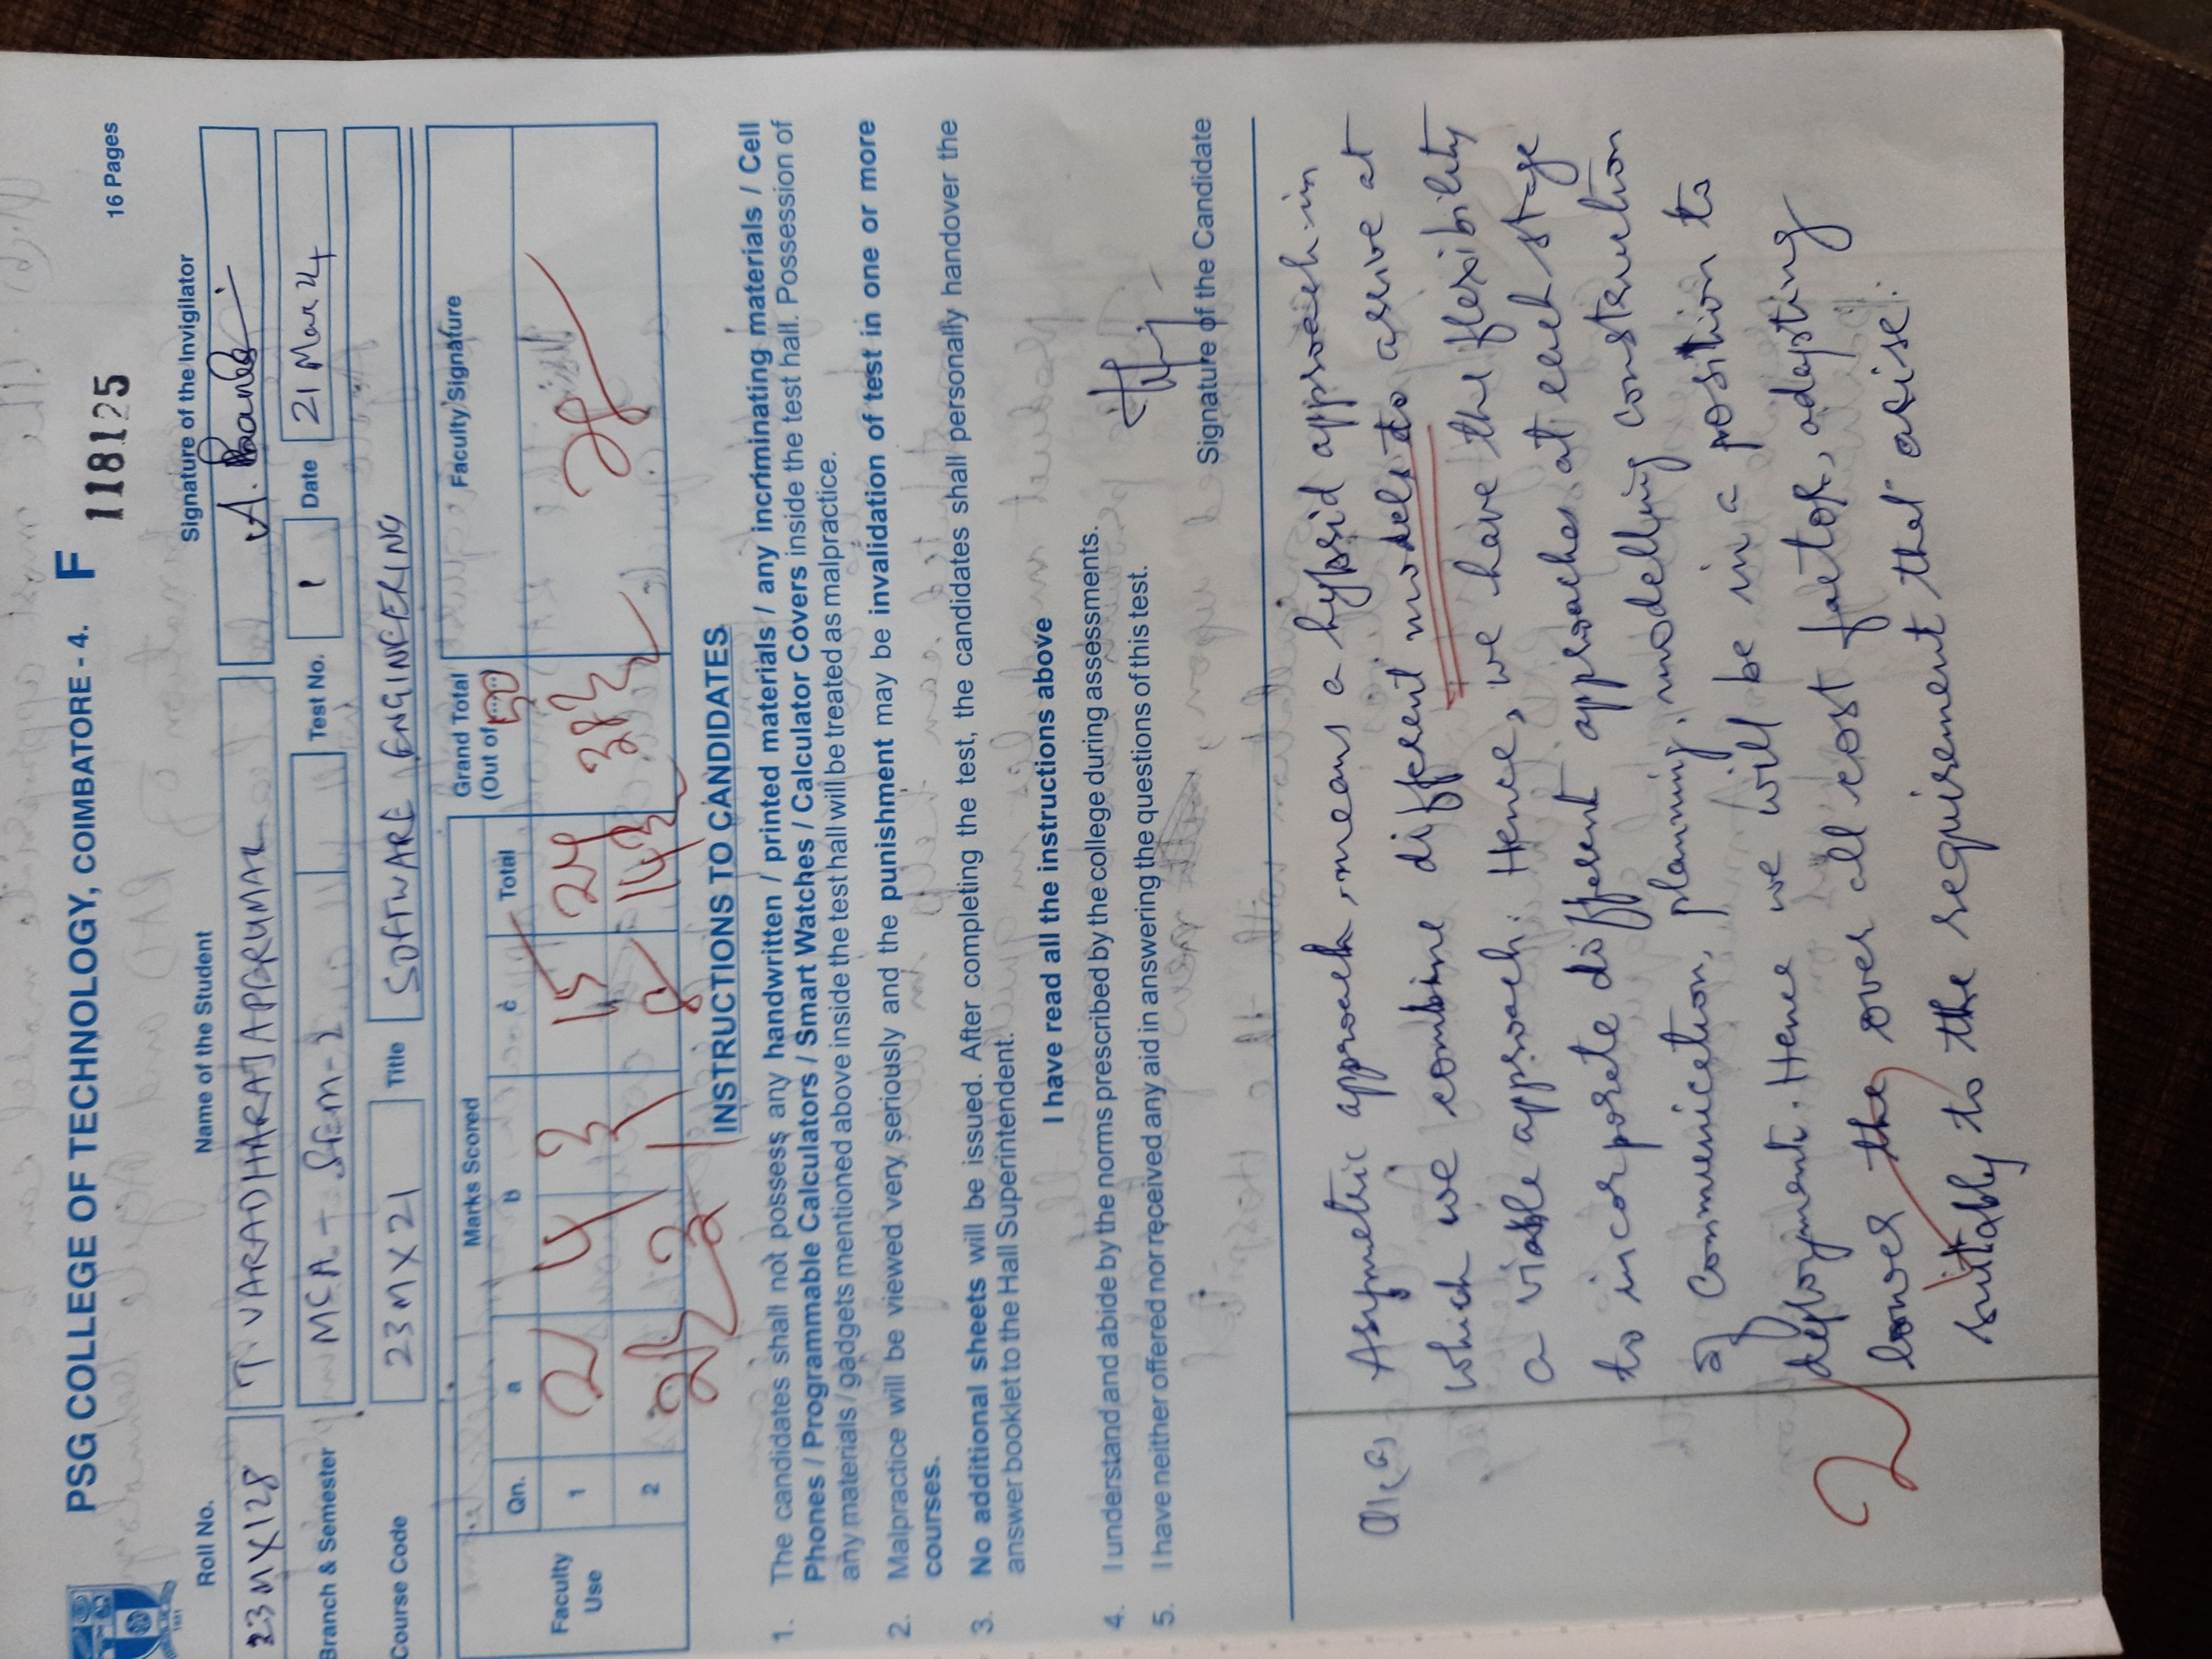 PSG COLLEGE OF TECHNOLOGY, COIMBATORE - 4. F 118125 16 Pages
Roll No. Name of the Student Signature of the Invigilator
23MX128 T. VARADHARAJAPERUMAL
Branch & Semester MCA - SEM-2 Test No. 1 Date 21 Mar 24
Course Code 23MX21 Title SOFTWARE ENGINEERING
Marks Scored Grand Total (Out of 50) Faculty Signature
Qn. a b c Total
Faculty Use
1 2 4 3 15 24
2 8
INSTRUCTIONS TO CANDIDATES
1. The candidates shall not possess any handwritten / printed materials / any incriminating materials / Cell
Phones / Programmable Calculators / Smart Watches / Calculator Covers inside the test hall. Possession of
any materials / gadgets mentioned above inside the test hall will be treated as malpractice.
2. Malpractice will be viewed very seriously and the punishment may be invalidation of test in one or more
courses.
3. No additional sheets will be issued. After completing the test, the candidates shall personally handover the
answer booklet to the Hall Superintendent.
I have read all the instructions above
4. I understand and abide by the norms prescribed by the college during assessments.
5. I have neither offered nor received any aid in answering the questions of this test.
Signature of the Candidate
Q1, a) Asymetric approach, means a hybrid approach in
which we combine different models to arrive at
a viable approach. Hence, we have the flexibility
to incorporate different approaches at each stage
of communication, planning, modelling construction
deployment. Hence we will be in a position to
2 lower the over all cost factor, adapting
suitably to the requirement that arise.